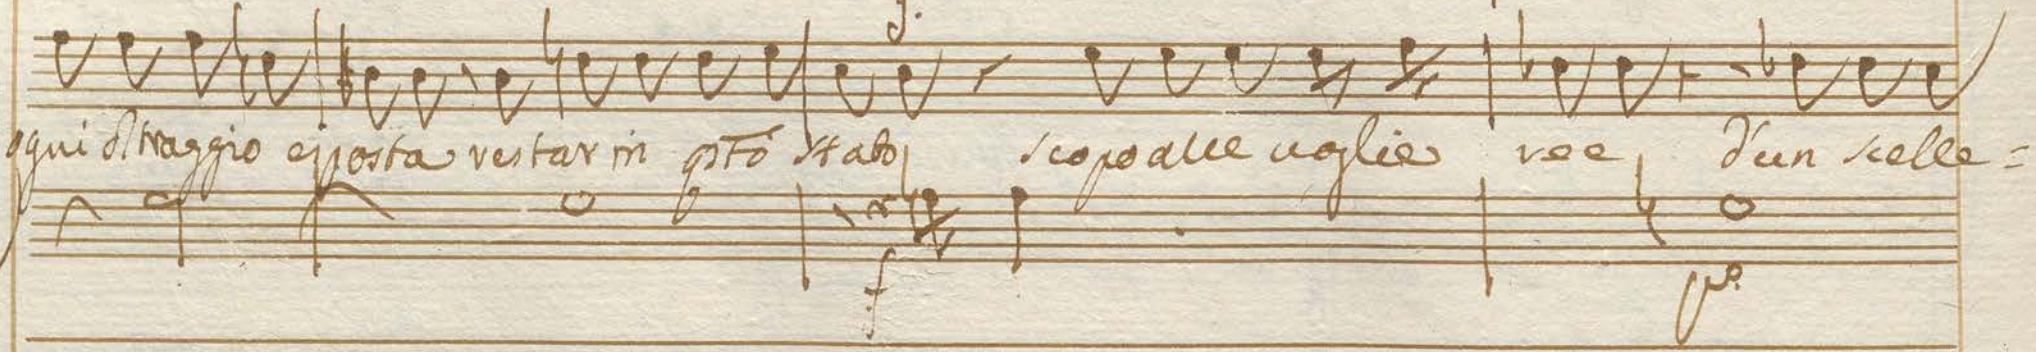 ogni oltraggio esposta restar in qsto stato, scopo alle voglie ree, d'un scelle=
f
po.